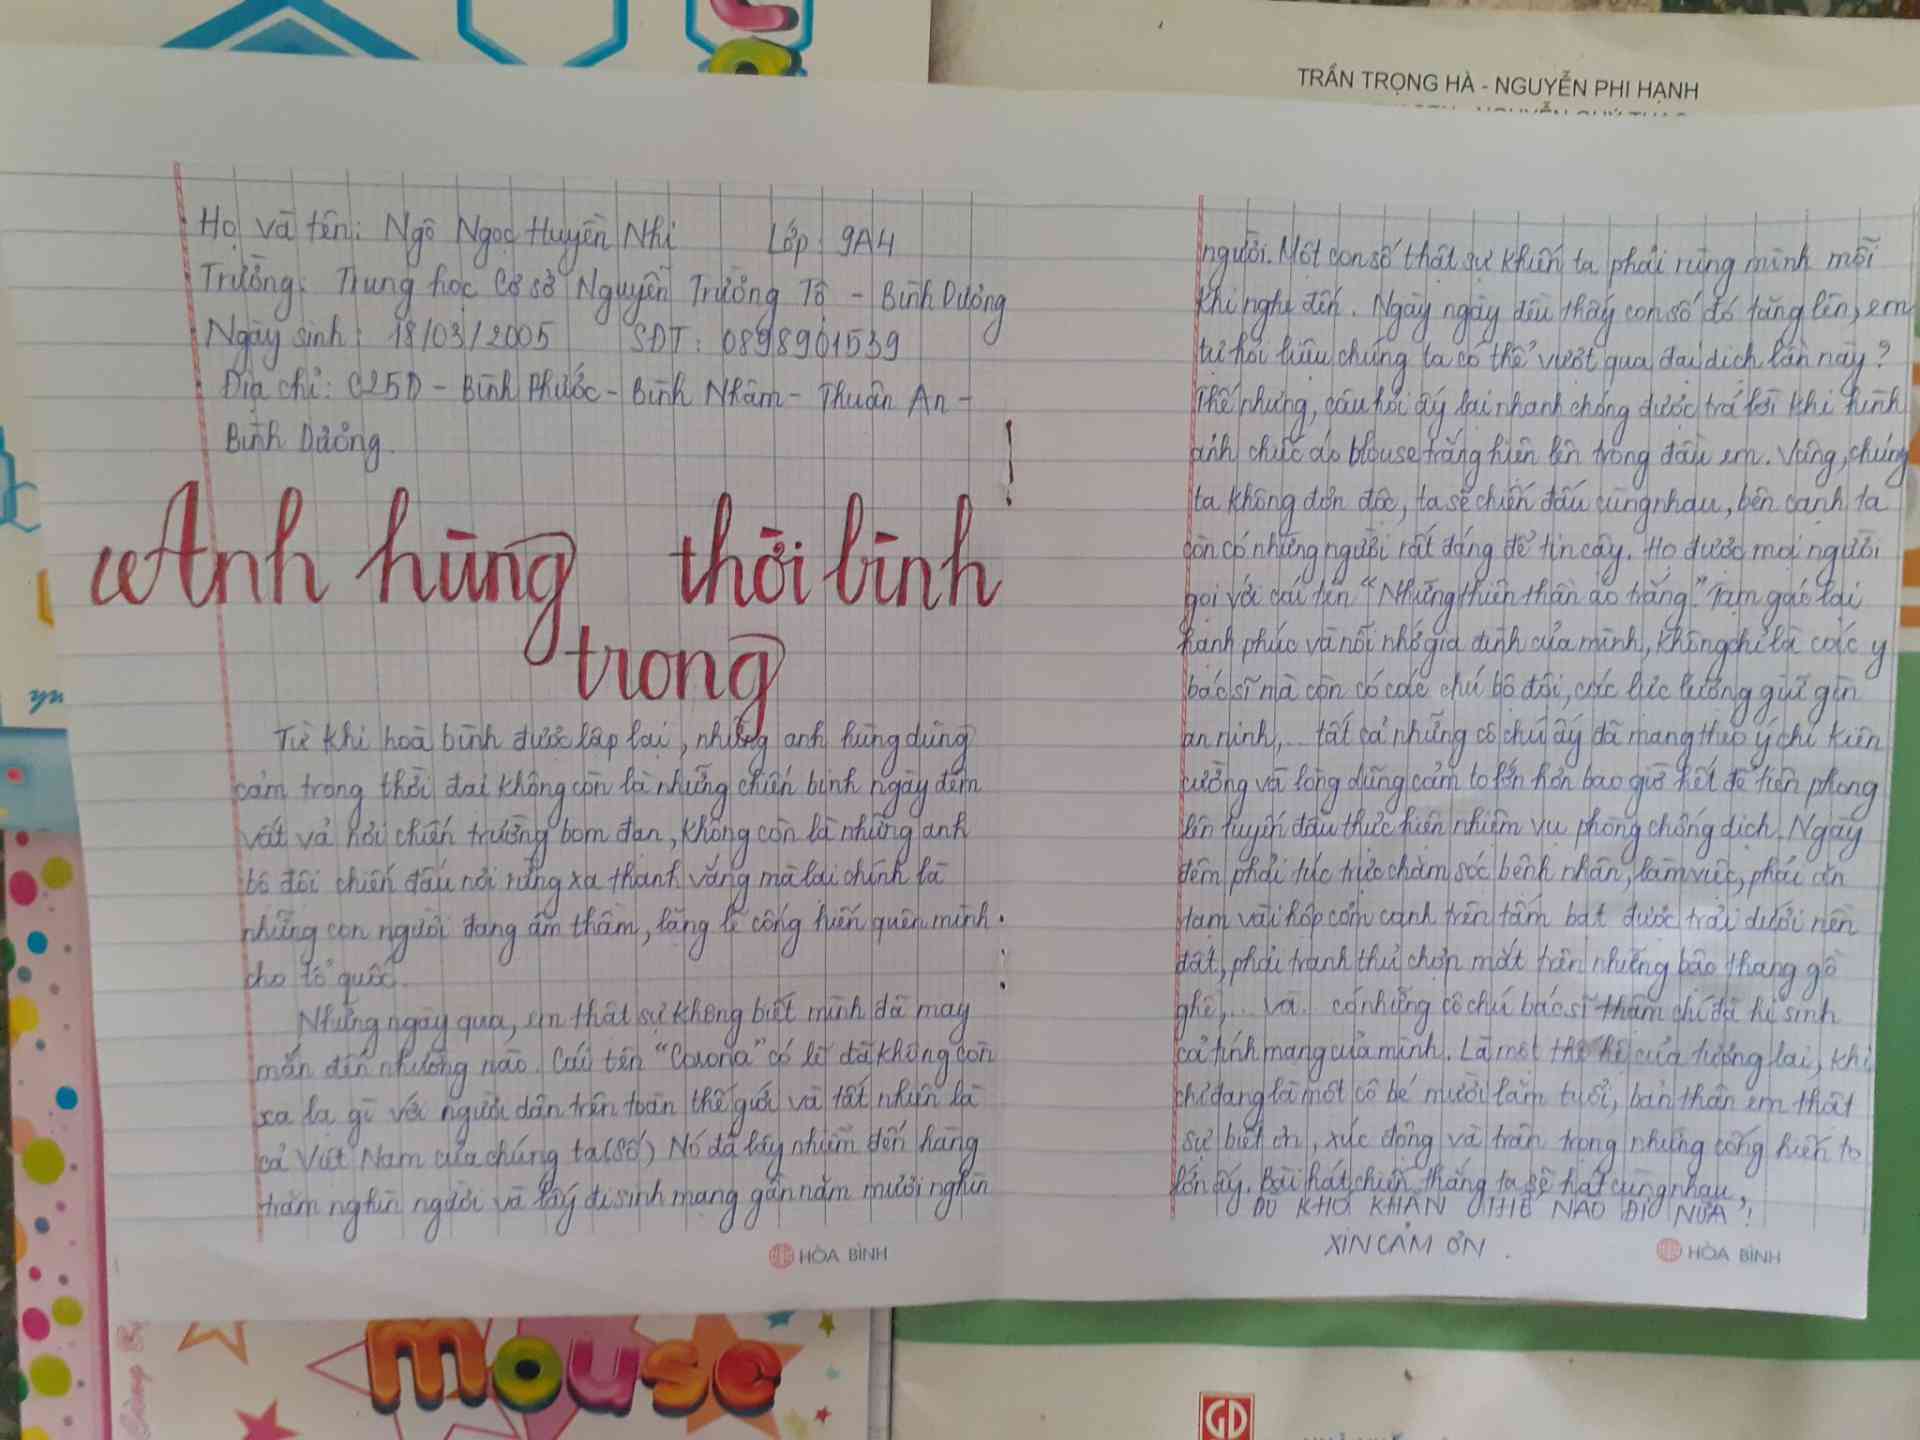 TRẦN TRỌNG HÀ - NGUYỄN PHI HẠNH
Họ và tên: Ngô Ngọc Huyền Nhi Lớp: 9A4
Trường: Trung học Cơ sở Nguyễn Trường Tộ - Bình Dương
Ngày sinh: 18/03/2005 SĐT: 0898901539
Địa chỉ: C25D - Bình Phước - Bình Nhâm - Thuận An -
Bình Dương.
Anh hùng thời bình
trong
Từ khi hoà bình được lập lại, những anh hùng dũng
cảm trong thời đại không còn là những chiến binh ngày đêm
vất vả nơi chiến trường bom đạn, không còn là những anh
bộ đội chiến đấu nơi rừng xa thanh vắng mà lại chính là
những con người đang âm thầm, lặng lẽ cống hiến quên mình
cho tổ quốc.
Những ngày qua, em thật sự không biết mình đã may
mắn đến nhường nào. Cái tên "Corona" có lẽ đã không còn
xa lạ gì với người dân trên toàn thế giới và tất nhiên là
cả Việt Nam của chúng ta (số) Nó đã lây nhiễm đến hàng
trăm nghìn người và lấy đi sinh mạng gần năm mươi nghìn
HÒA BÌNH
người. Một con số thật sự khiến ta phải rùng mình mỗi
khi nghĩ đến. Ngày ngày đều thấy con số đó tăng lên, em
tự hỏi liệu chúng ta có thể vượt qua đại dịch lần này?
Thế nhưng, câu hỏi ấy lại nhanh chóng được trả lời khi hình
ảnh chiếc áo blouse trắng hiện lên trong đầu em. Vâng, chúng
ta không đơn độc, ta sẽ chiến đấu cùng nhau, bên cạnh ta
còn có những người rất đáng để tin cậy. Họ được mọi người
gọi với cái tên "Những thiên thần áo trắng." Tạm gác lại
hạnh phúc và nỗi nhớ gia đình của mình, không chỉ là các y
bác sĩ mà còn có các chú bộ đội, các lực lượng giữ gìn
an ninh,... tất cả những cô chú ấy đã mang theo ý chí kiên
cường và lòng dũng cảm to lớn hơn bao giờ hết để tiên phong
lên tuyến đầu thực hiện nhiệm vụ phòng chống dịch. Ngày
đêm phải túc trực chăm sóc bệnh nhân, làm việc, phải ăn
tạm vài hộp cơm cạnh trên tấm bạt được trải dưới nền
đất, phải tranh thủ chợp mắt trên những bậc thang gồ
ghề,... và có những cô chú bác sĩ thậm chí đã hi sinh
cả tính mạng của mình. Là một thế hệ của tương lai, khi
chỉ đang là một cô bé mười lăm tuổi, bản thân em thật
sự biết ơn, xúc động và trân trọng những cống hiến to
lớn ấy. Bài hát chiến thắng ta sẽ hát cùng nhau,
DÙ KHÓ KHĂN THẾ NÀO ĐI NỮA!
XIN CẢM ƠN.
HÒA BÌNH
mouse
GD